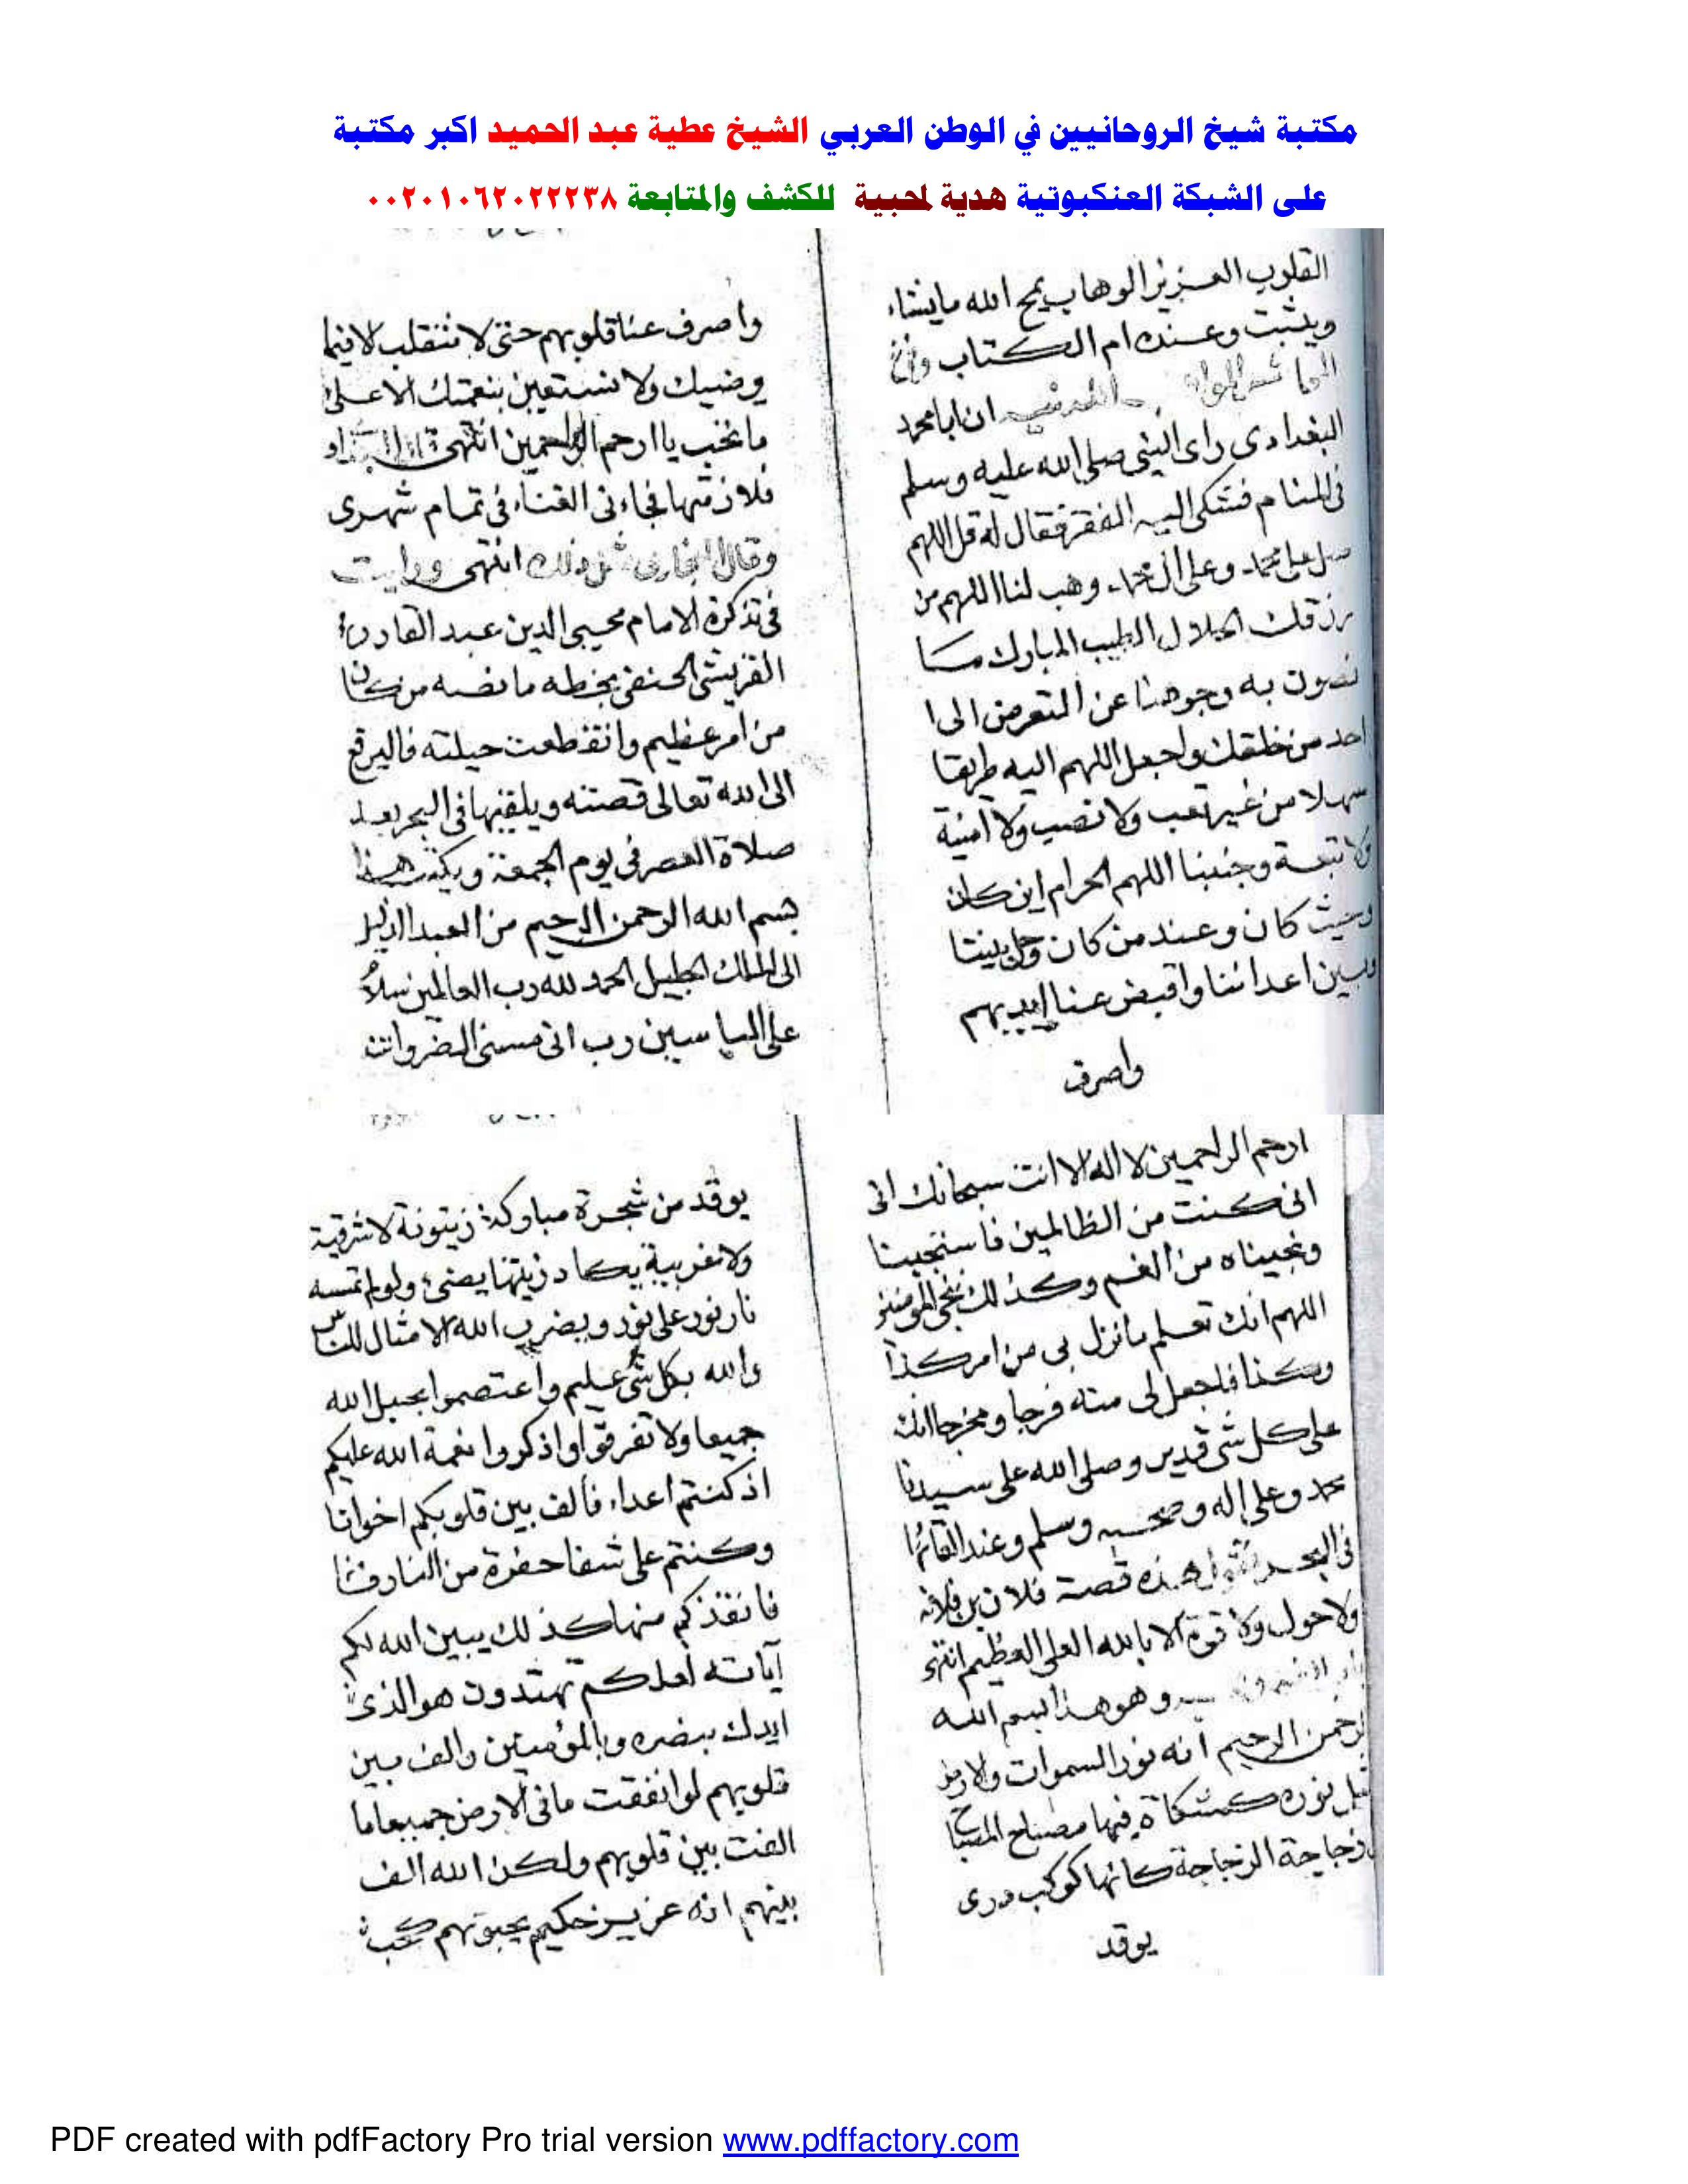 مكتبة شيخ الروحانيين في الوطن العربي الشيخ عطية عبد الحميد اكبر مكتبة
على الشبكة العنكبوتية هدية لمحبية للكشف والمتابعة ٠٠٢٠١٠٦٢٠٢٢٢٣٨
القلوب العزيز الوهاب يمح الله مايشاء
ويثبت وعنده ام الكتاب
ان ابا محمد
البغدادى راى النبى صلى الله عليه وسلم
فى المنام فشكى اليه الفقر فقال له قل اللهم
صل على محمد وعلى ال محمد وهب لنا اللهم من
رزقك الحلال الطيب المبارك ما
نصون به وجوهنا عن التعرض الى ا
احد من خلقك واجعل اللهم اليه طريقا
سهلا من غير تعب ولا نصب ولا امنية
ولا تبعة وجنبنا اللهم الحرام اين كان
وحيث كان وعند من كان وحل بيننا
وبين اعدائنا واقبض عنا ايديهم
واصرف
واصرف عنا قلوبهم حتى لا تنقلب الا فيما
يرضيك ولا نستعين بنعمتك الا على
ما تحب ياارحم الراحمين انتهى
فلازمتها فجاءنى الغناء فى تمام شهرى
وقال انتهى ورايت
فى تذكرة الامام محيى الدين عبد القادر
القريشى الحنفى بخطه ما نصه من كان
من امر عظيم وانقطعت حيلته فاليرفع
الى الله تعالى قصته ويلقيها فى البحر بعد
صلاة العصر فى يوم الجمعة ويكتب هذا
بسم الله الرحمن الرحيم من العبد الذليل
الى الملك الجليل الحمد لله رب العالمين سلام
على الياسين رب انى مسنى الضر وانت
ارحم الراحمين لا اله الا انت سبحانك انى
انى كنت من الظالمين فاستجبنا
ونجيناه من الغم وكذلك ننجى المومنين
اللهم انك تعلم ما نزل بى من امر كذا
وكذا فاجعل لى منه فرجا ومخرجا انك
على كل شى قدير وصلى الله على سيدنا
محمد وعلى اله وصحبه وسلم وعند القائها
فى البحر تقول هذه قصة فلان بن فلانه
ولا حول ولا قوة الا بالله العلى العظيم انتهى
وهو هذا بسم الله
الرحمن الرحيم الله نور السموات والارض
مثل نوره كمشكاة فيها مصباح المصباح
زجاجة الزجاجة كانها كوكب درى
يوقد
يوقد من شجرة مباركة زيتونة لا شرقية
ولا غربية يكاد زيتها يضىء ولو لم تمسه
نار نور على نور ويضرب الله الامثال للناس
والله بكل شئ عليم واعتصموا بحبل الله
جميعا ولا تفرقوا واذكروا نعمة الله عليكم
اذ كنتم اعداء فالف بين قلوبكم اخوانا
وكنتم على شفا حفرة من النار
فانقذكم منها كذلك يبين الله لكم
آياته لعلكم تهتدون هو الذى
ايدك بنصره وبالمؤمنين والف بين
قلوبهم لو انفقت ما فى الارض جميعا ما
الفت بين قلوبهم ولكن الله الف
بينهم انه عزيز حكيم يحبونهم كحب
PDF created with pdfFactory Pro trial version www.pdffactory.com